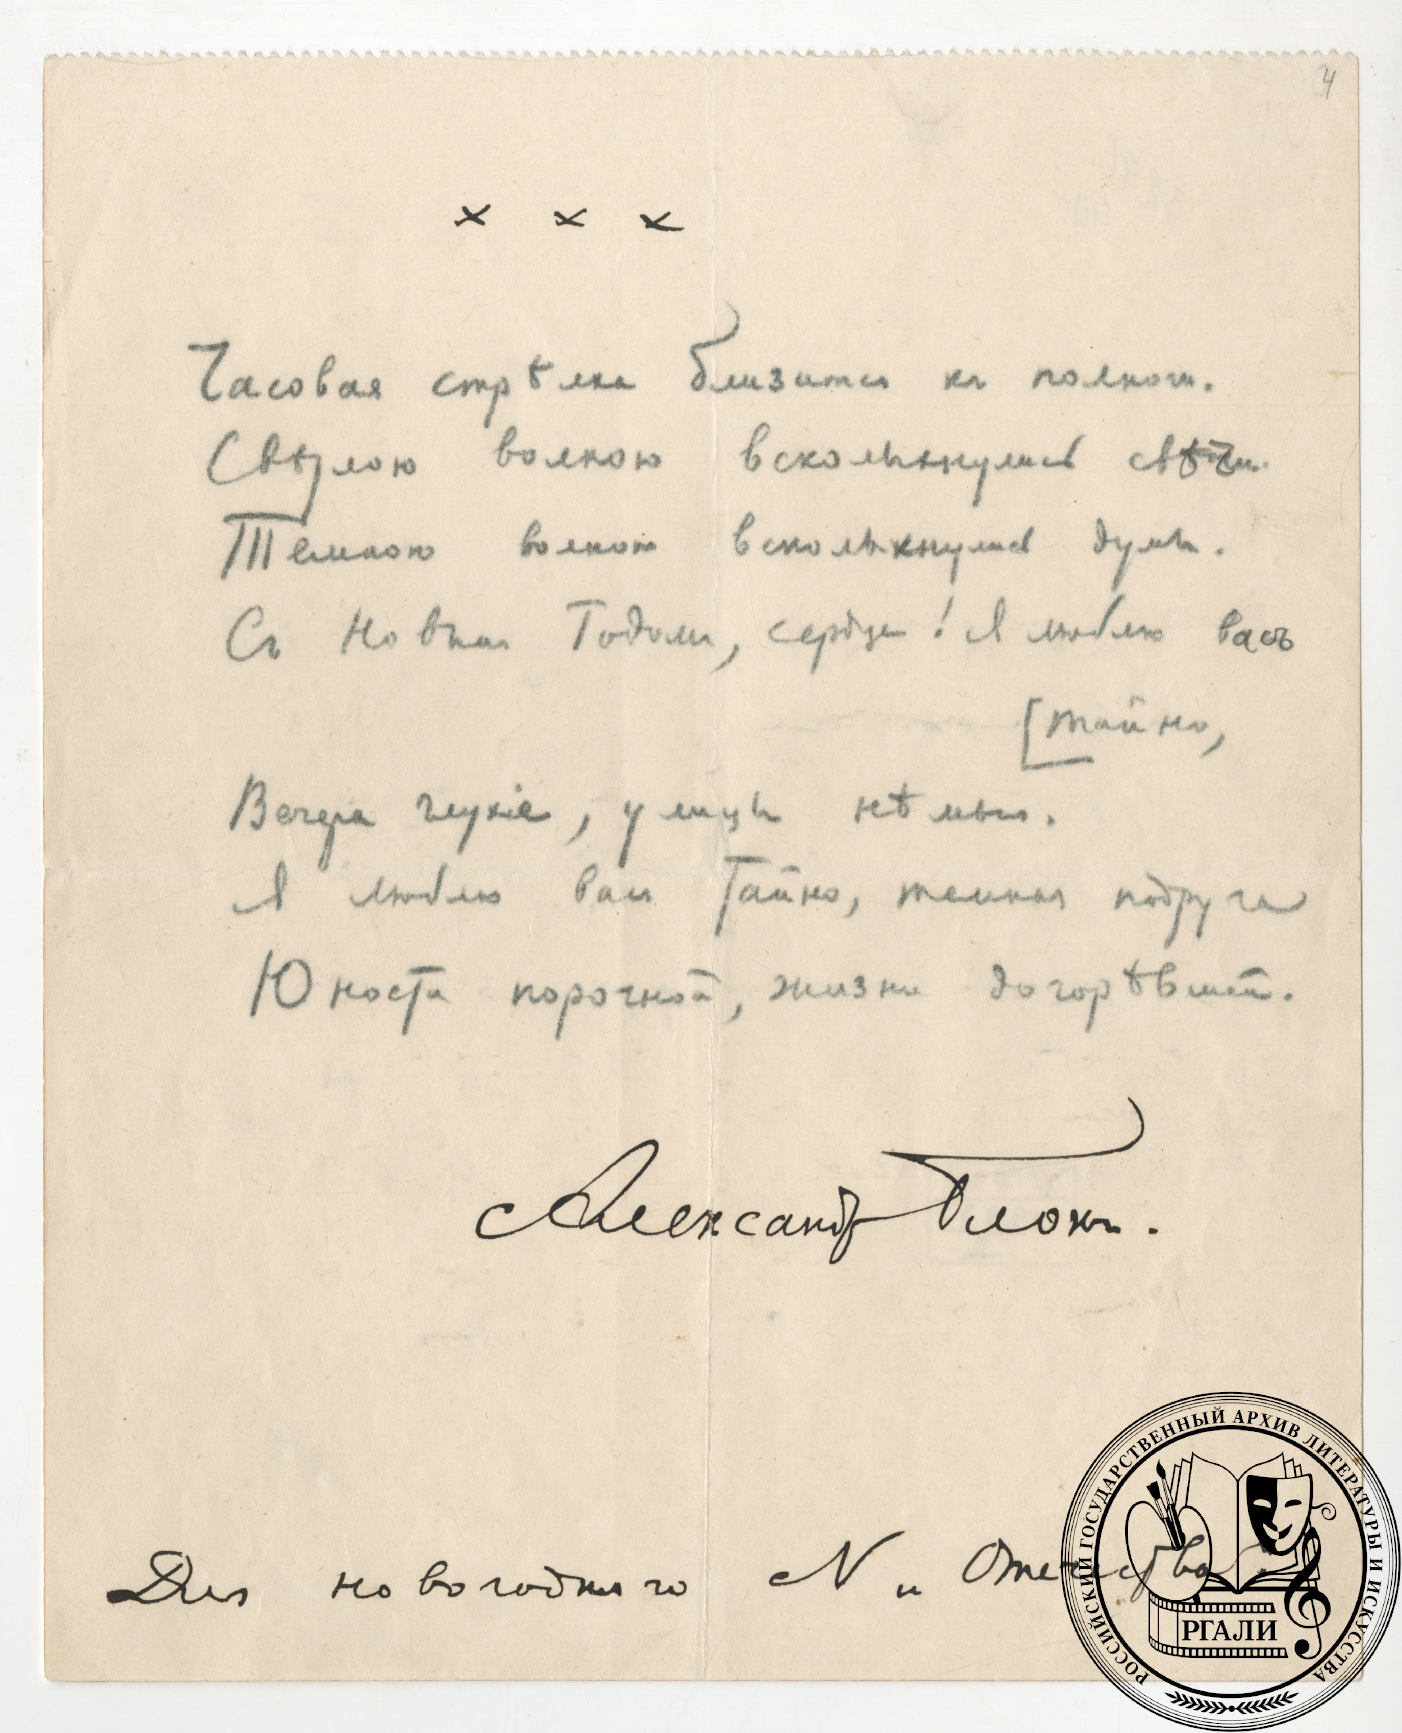 4
× × ×
Часовая стрѣлка близится къ полночи.
Свѣтлою волною всколыхнулись свѣчи.
Темною волною всколыхнулись думы.
Съ Новымъ Годомъ, сердце! Я люблю васъ
[тайно,
Вечера глухіе, улицы нѣмыя.
Я люблю васъ тайно, темная подруга
Юности порочной, жизни догорѣвшей.
Александръ Блокъ.
Для новогодняго N и Отечества
РОССИЙСКИЙ ГОСУДАРСТВЕННЫЙ АРХИВ ЛИТЕРАТУРЫ И ИСКУССТВА
РГАЛИ